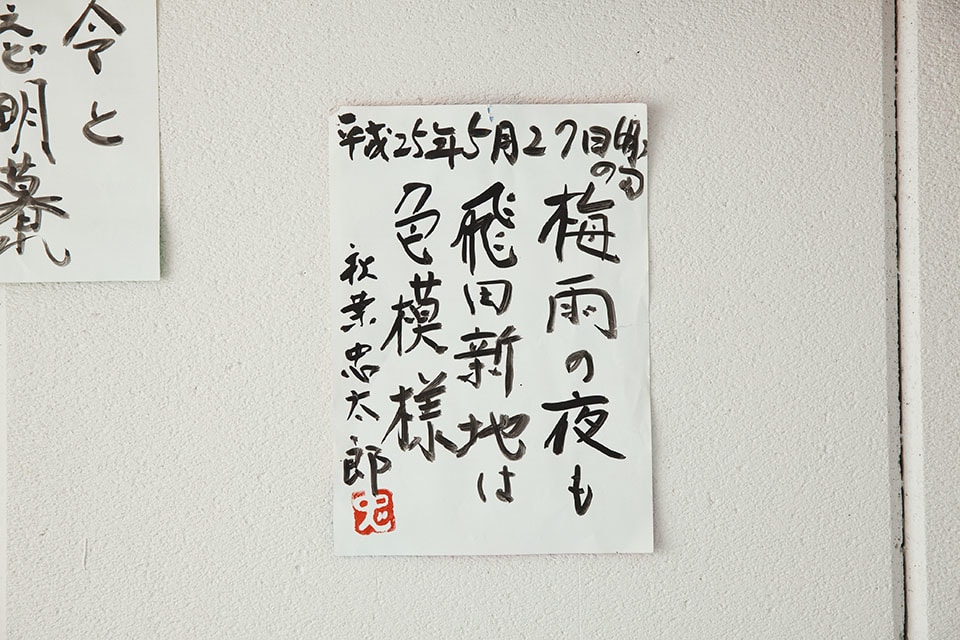 平成25年5月27日
の句
梅雨の夜も
飛田新地は
色模様
秋葉忠太郎
忠
令と
明暮れ